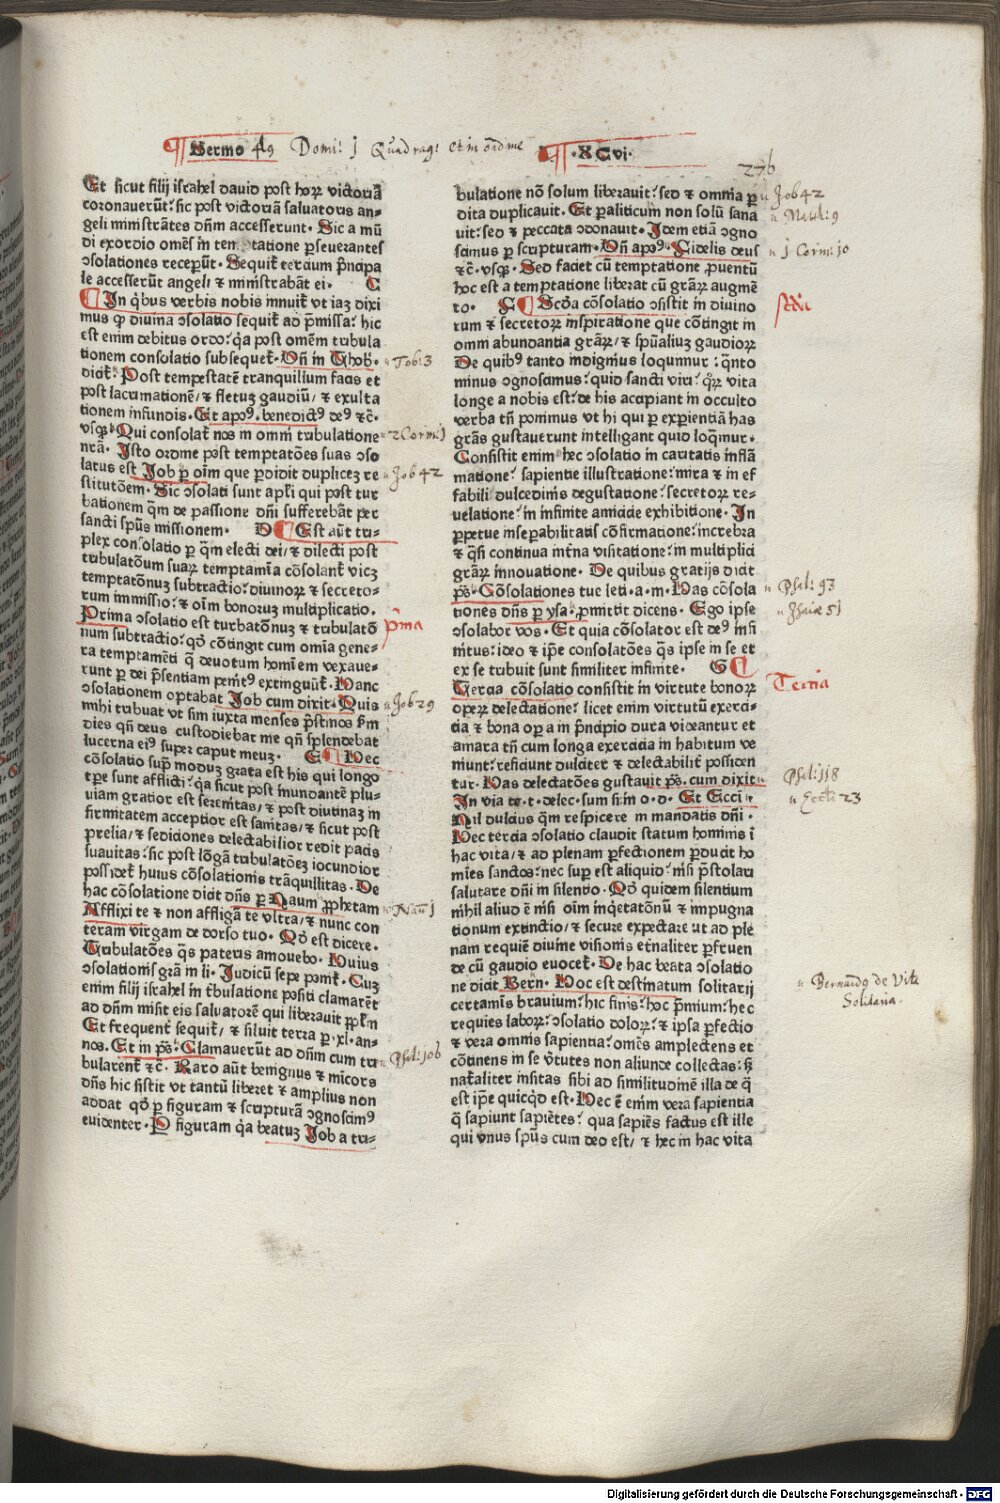 Sermo 49 Domi: j Quadrag: et in ordine ·XCvi·
276
Et sicut filij israhel dauid post horꝝ victoriā
coronauerūt: sic post victoriā saluatoris an-
geli ministrātes dn̄m accesserunt· Sic a mū
di exordio omēs in temptatione ꝑseuerantes
ɔsolationes receperūt· Sequit̄ tercium p̄ncipa
le accesserūt angeli ⁊ ministrabāt ei· C
In q̇bus verbis nobis innuit̄ vt iaꝫ dixi
mus ꝙ diuina ɔsolatio sequit̄ ad p̄missa: hic
est enim debitus ordo: q̇a post omēm tribula
tionem consolatio subsequet̄· Vn̄ in Thob·
dicit̄· Post tempestatē tranquillum facis et
post lacrimationē/ ⁊ fletuꝫ gaudiū/ ⁊ exulta
tionem infundis· Et apoꝰ· benedictꝰ deꝰ ⁊ c̄·
vsqꝫ· Qui consolat̄ nos in omni tribulatione
nr̄a· Isto ordine post temptatōes suas ɔso
latus est Job ꝑ oīm que ꝑdidit dupliceꝫ re
stitutōem· Sic ɔsolati sunt apl̄i qui post tur
bationem q̄m de passione dn̄i sufferebāt per
sancti spūs missionem· D Est aūt tri-
plex consolatio ꝑ q̄m electi dei/ ⁊ dilecti post
tribulatōum suaꝝ temptamīa cōsolant̄ vicꝫ
temptatōnuꝫ subtractio: diuinoꝝ ⁊ secreto-
rum immissio: ⁊ oīm bonoruꝫ multiplicatio·
Prima ɔsolatio est turbatōnuꝫ ⁊ tribulatō
num subtractio: qd̄ cōtingit cum omīa gene-
ra temptamēti q̄ deuotum homīem vexaue-
runt ꝑ dei p̄sentiam penitꝰ extinguūt̄· Hanc
ɔsolationem optabat Job cum dixit· Quis
mihi tribuat vt sim iuxta menses p̄stinos s̄m
dies qn̄ deus custodiebat me qn̄ splendebat
lucerna eiꝰ super caput meuꝫ· E Hec
cōsolatio sup̄ moduꝫ grata est his qui longo
tp̄e sunt afflicti: q̇a sicut post inundantē plu-
uiam gratior est serenitas/ ⁊ post diutinaꝫ in
firmitatem acceptior est sanitas/ ⁊ sicut post
prelia/ ⁊ sediciones delectabilior redit pacis
suauitas: sic post lōgā tribulatōeꝫ iocundior
possidet̄ huius cōsolationis trāquillitas· De
hac cōsolatione dicit dn̄s ꝑ Naum ꝓphetam
Afflixi te ⁊ non affligā te vltra/ ⁊ nunc con
teram virgam de dorso tuo· Qd̄ est dicere·
Tribulatōes q̄s pateris amouebo· Huius
ɔsolationis grā in li· Judicū sepe ponit̄· Cuꝫ
enim filij israhel in tribulatione positi clamarēt
ad dn̄m misit eis saluatorē qui liberauit pp̄l̄m
Et frequent̄ sequit̄/ ⁊ siluit terra ꝑ·xl·an-
nos· Et in ps̄· Clamauerūt ad dn̄m cum tri
bularent̄ ⁊ c̄· Raro aūt benignus ⁊ m̄icors
dn̄s hic sistit vt tantū liberet ⁊ amplius non
addat qd̄ ꝑ figuram ⁊ scripturā ɔgnoscimꝰ
euidenter· P figuram q̇a beatuꝫ Job a tri-
Tob: 3
2 Corin: j
Job 42
p̄ma
Job 29
Nau j
Psal: 106
bulatione nō solum liberauit: sed ⁊ omnia ꝑ
dita duplicauit· Et paliticum non solū sana
uit: sed ⁊ peccata ɔdonauit· Idem etiā ɔgno
scimus ꝑ scripturam· Vn̄ apoꝰ· Fidelis deus
⁊ c̄· vsqꝫ· Sed faciet cū temptatione ꝓuentū
hoc est a temptatione liberat cū grāꝝ augmē
to· F Scd̄a cōsolatio ɔsistit in diuino
rum ⁊ secretoꝝ inspiratione que cōtingit in
omni abundantia grāꝝ/ ⁊ spūaliuꝫ gaudioꝝ
De quibꝰ tanto indignius loquimur: q̄nto
minus ɔgnoscimus: quid sancti viri: q̄ꝝ vita
longe a nobis est: de his accipiant in occulto
verba tn̄ ponimus vt hi qui ꝑ exꝑientiā has
grās gustauerunt intelligant quid loq̇mur·
Consistit enim hec ɔsolatio in caritatis inflā
matione: sapientie illustratione: mira ⁊ in ef
fabili dulcedinis degustatione: secretoꝝ re-
uelatione: in infinite amicicie exhibitione· In
ꝑpetue inseꝑabilitatis cōfirmatione: increbra
⁊ q̄si continua int̄na visitatione: in multiplici
grāꝝ innouatione· De quibus gratijs dicit
ps̄· Cōsolationes tue leti·a·m· Has cōsola
tiones dn̄s ꝑ ysa·ꝓmittit dicens· Ego ipse
ɔsolabor vos· Et quia cōsolator est deꝰ infi
nitus: ideo ⁊ ip̄e consolatōes q̄s ipse in se et
ex se tribuit sunt similiter infinite· G
Tercia cōsolatio consistit in virtute bonoꝝ
operꝝ delectatione: licet enim virtutū exerci-
cia ⁊ bona oꝑa in p̄ncipio dura videantur et
amara tn̄ cum longa exercicia in habitum ve
niunt: reficiunt dulciter ⁊ delectabilit̄ possiden
tur· Has delectatōes gustauit ps̄· cum dixit
In via te·t·delec·sum si·in o·d· Et Ecci
Nil dulcius q̄m respicere in mandatis dn̄i·
Hec tercia ɔsolatio claudit statum hominis ī
hac vita/ ⁊ ad plenam ꝑfectionem ꝑducit ho
mīes sanctos: nec suꝑ est aliquid: nisi p̄stolari
salutare dn̄i in silentio· Qd̄ quidem silentium
nihil aliud ē nisi oīm inq̇etatōnū ⁊ impugna
tionum extinctio/ ⁊ secure expectare vt ad ple
nam requiē diuine visionis et̄naliter ꝑfruen
de cū gaudio euocet̄· De hac beata ɔsolatio
ne dicit Bern̄· Hoc est destinatum solitarij
certaminis brauium: hic finis: hoc p̄mium: hec
requies laboꝝ: ɔsolatio doloꝝ: ⁊ ipsa ꝑfectio
⁊ vera omnis sapientia: omēs amplectens et
cōtinens in se v̄tutes non aliunde collectas: sꝫ
nat̄aliter insitas sibi ad similitudinē illa de q̄
est ip̄e quicq̇d est· Hec ē enim vera sapientia
q̄ sapiunt sapiētes: qua sapiēs factus est ille
qui vnus spūs cum deo est/ ⁊ hec in hac vita
Job 42
Math: 9
j Corin: 10
Psal: 93
Jsaie 51
Tertia
Psal: 118
Eccli 23
Bernardꝰ de Vita
Solitaria·
Digitalisierung gefördert durch die Deutsche Forschungsgemeinschaft - DFG